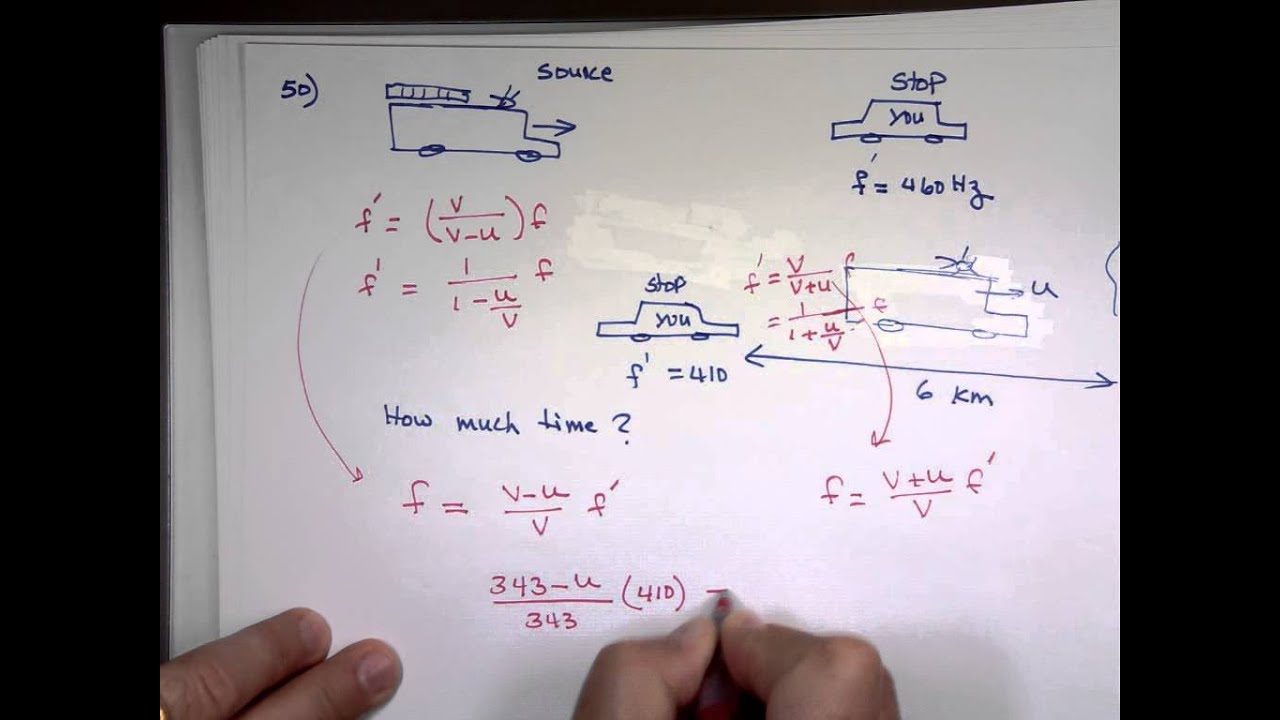 50)
Source
Stop
you
f' = 460 Hz
f' = (V/V-u) f
f' = 1/1-u/V f
Stop
you
f' = 410
f' = V/V+u f
= 1/1+u/V f
u
6 km
How much time?
f = V-u/V f'
f = V+u/V f'
343-u/343 (410)